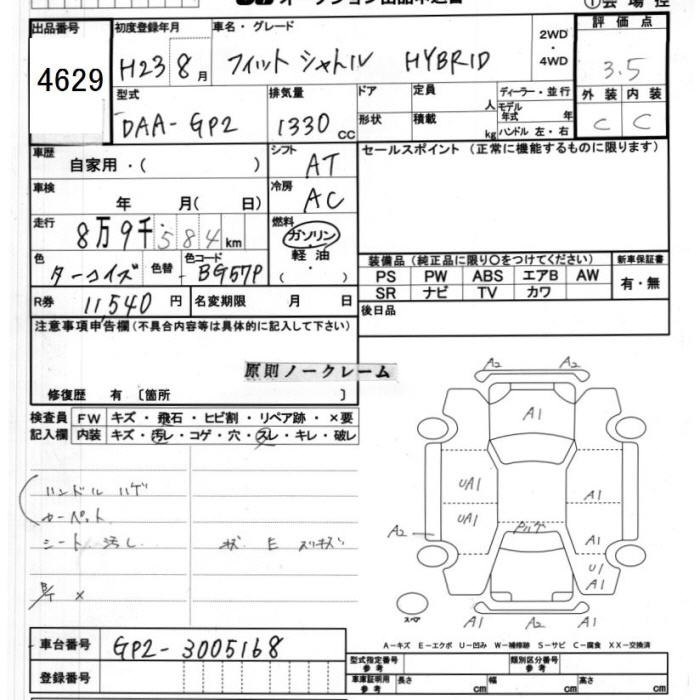 オークション出品申込書 ①会場控
出品番号 初度登録年月 車名・グレード 2WD・4WD 評価点
4629 H23 8月 フィット シャトル HYBRID 3.5
型式 排気量 ドア 定員 人 ディーラー・並行 外装 内装
DAA-GP2 1330cc 形状 積載 kg モデル年式 年 ハンドル 左・右 C C
車歴 自家用・( ) シフト AT セールスポイント (正常に機能するものに限ります)
車検 年 月( 日) 冷房 AC
走行 8万9千584km 燃料 ガソリン・軽油・( )
色 ターコイズ 色替 色コード BG57P 装備品 (純正品に限り○をつけてください) 新車保証書
PS PW ABS エアB AW 有・無
SR ナビ TV カワ
R券 11,540円 名変期限 月 日 後日品
注意事項申告欄 (不具合内容等は具体的に記入して下さい)
原則ノークレーム
修復歴 有 〔箇所 〕
検査員 FW キズ・飛石・ヒビ割・リペア跡・×要
記入欄 内装 キズ・汚レ・コゲ・穴・スレ・キレ・破レ
ハンドル ハゲ
カーペット
シート 汚し キズ E スリキズ
B/T ×
A2 A2
A1
UA1 A1
UA1 A1
A2 ハゲ
U1
A1
スペア A1 A2 A1
A-キズ E-エクボ U-凹み W-補修跡 S-サビ C-腐食 XX-交換済
車台番号 GP2-3005168
型式指定番号 参考 類別区分番号 参考
登録番号 車庫証明用 参考 長さ cm 幅 cm 高さ cm